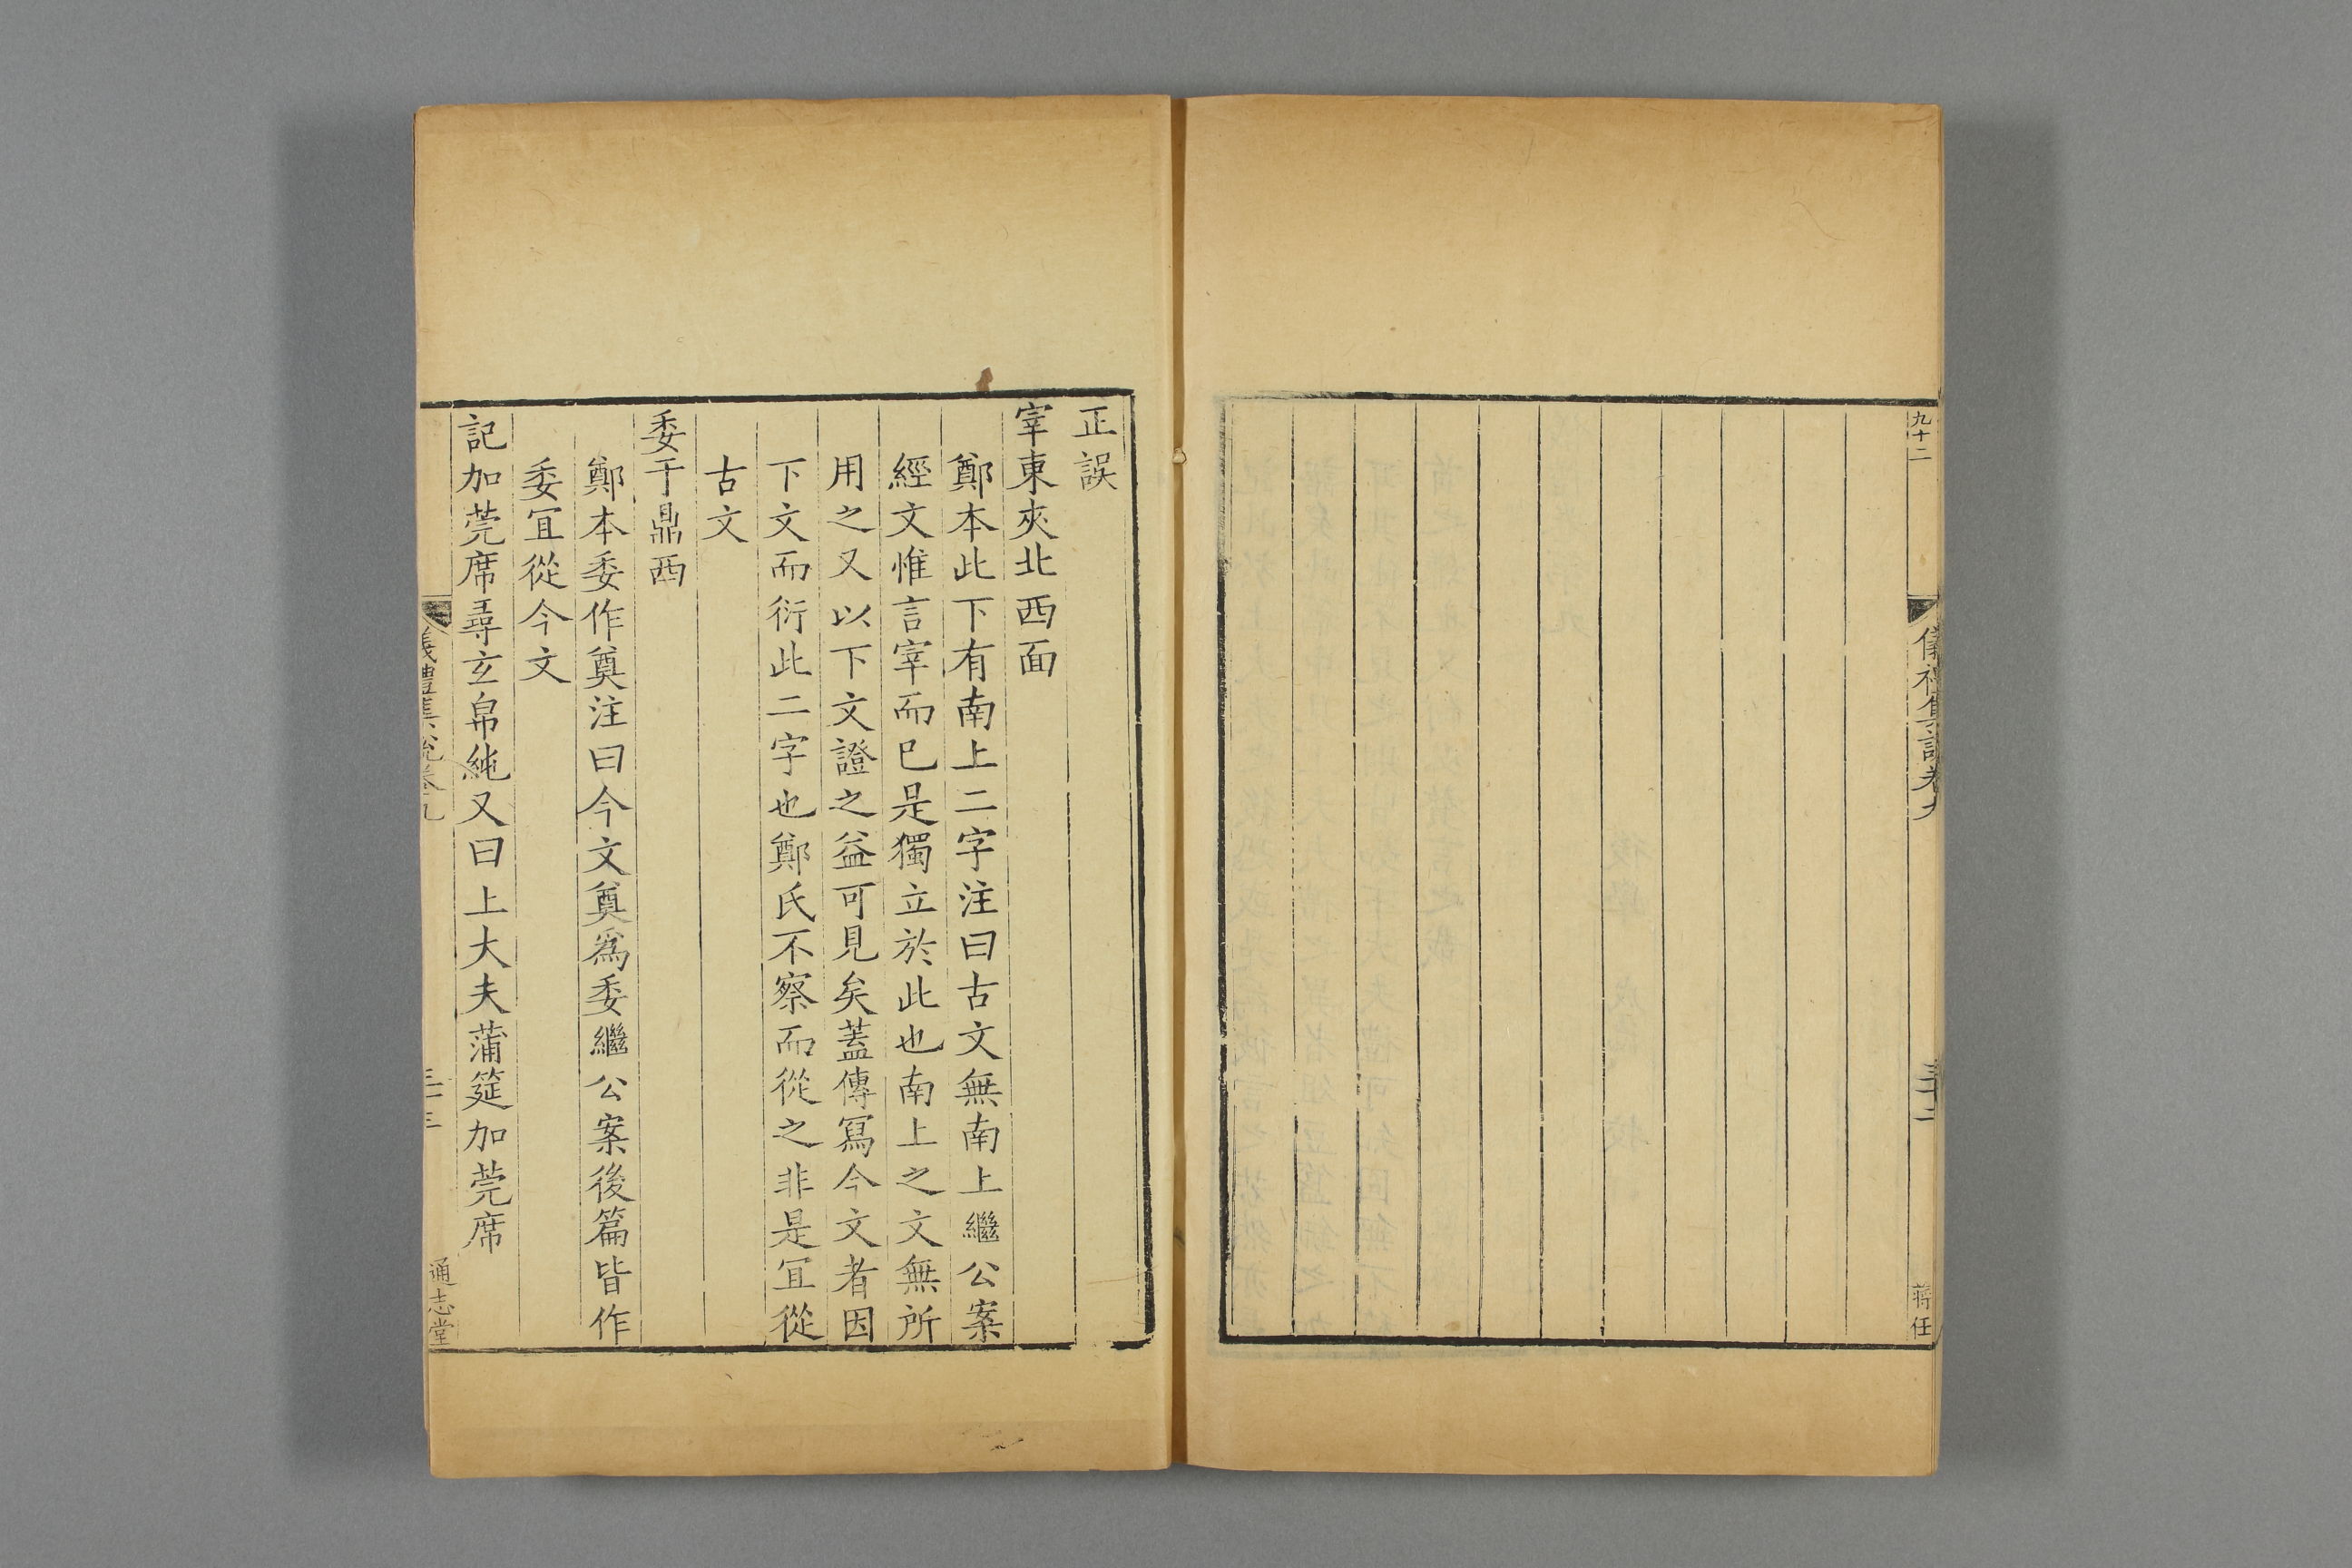 九十二
儀禮集說卷九
三十二
蔣任
正誤
宰東夾北西面
鄭本此下有南上二字注曰古文無南上繼公案
經文惟言宰而已是獨立於此也南上之文無所
用之又以下文證之益可見矣蓋傳寫今文者因
下文而衍此二字也鄭氏不察而從之非是宜從
古文
委于鼎西
鄭本委作奠注曰今文奠爲委繼公案後篇皆作
委宜從今文
記加莞席尋玄帛純又曰上大夫蒲筵加莞席
儀禮集說卷九
三十三
通志堂